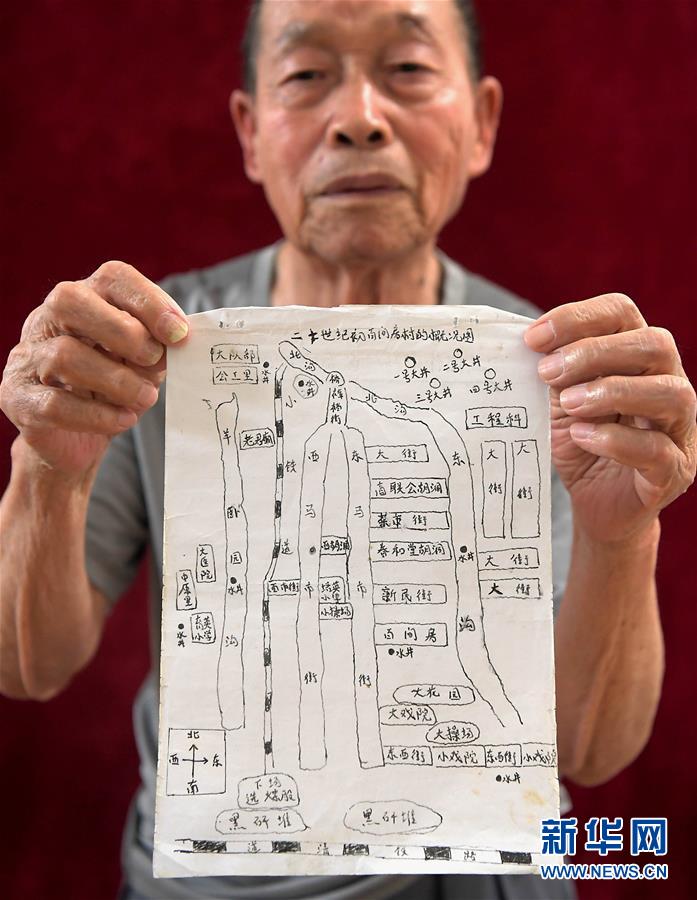 二十世纪初百间房村的概况图
大队部
公工里
水井
北沟
水井
小铁道
桥
北沟
一号大井
二号大井
三号大井
四号大井
工程科
羊卧园沟
老君庙
西马市街
东马市街
大街
高联公胡洞
菜市街
泰和堂胡洞
新民街
百间房
水井
东沟
水井
大街
大街
大街
大街
大医院
中原里
水井
育英小学
水井
西胡洞
西市街
培英小学
小操场
大花园
大戏院
大操场
东西街
小戏院
东西街
小戏院
水井
北
西
东
南
下场
选煤股
黑矸堆
黑矸堆
道清铁路
新华网
WWW.NEWS.CN